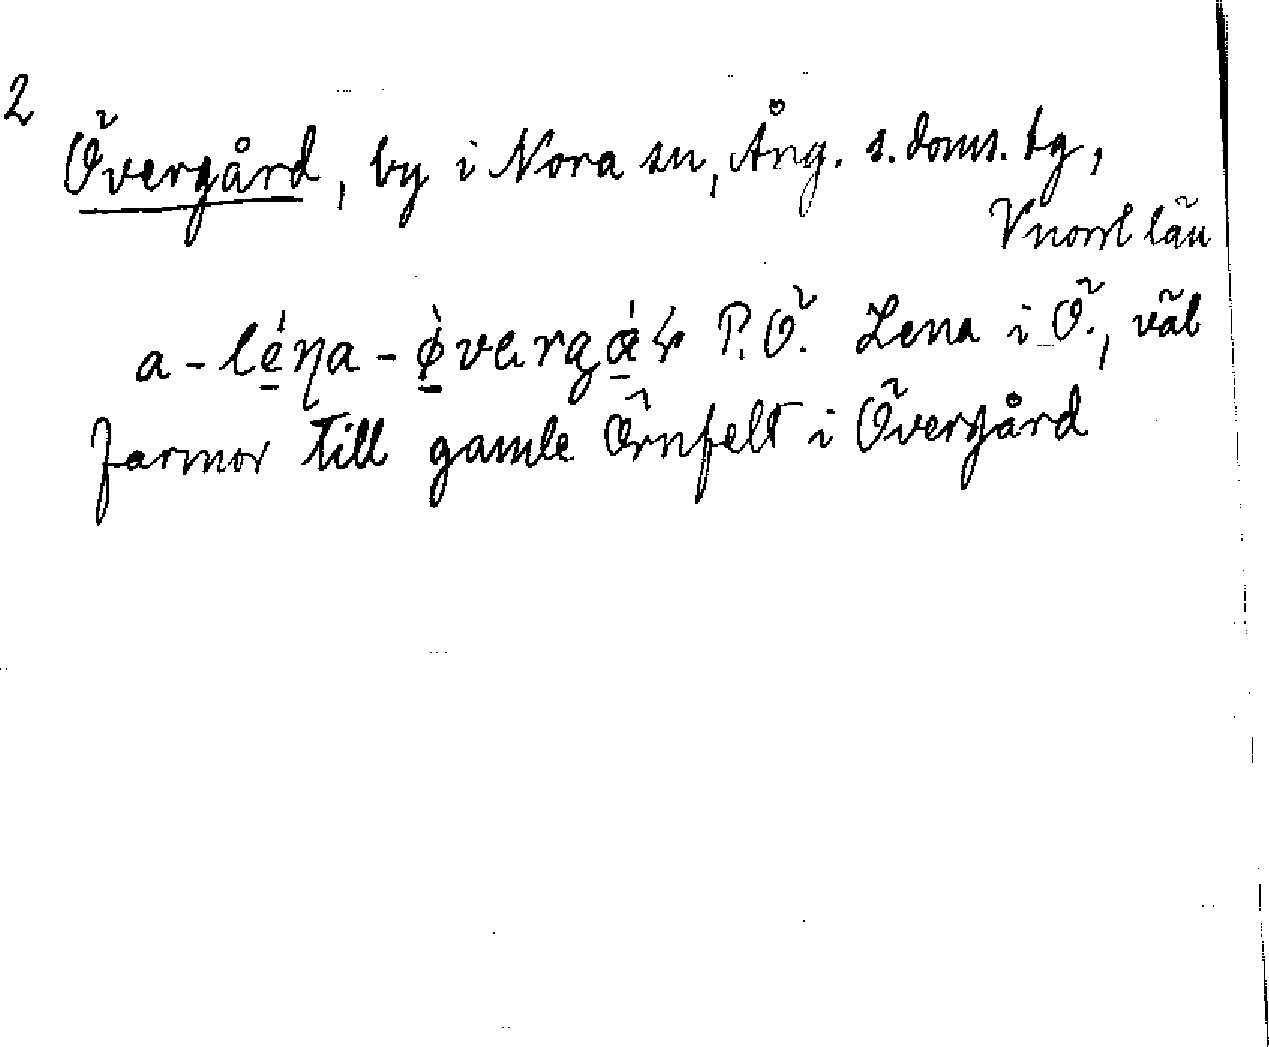 2
Övergård, by i Nora sn, Ång. s. doms. tg,
Vnorrl län
a-léna-ø̀vargá P.Ö. Lena i Ö., väl
farmor till gamle Örnfelt i Övergård